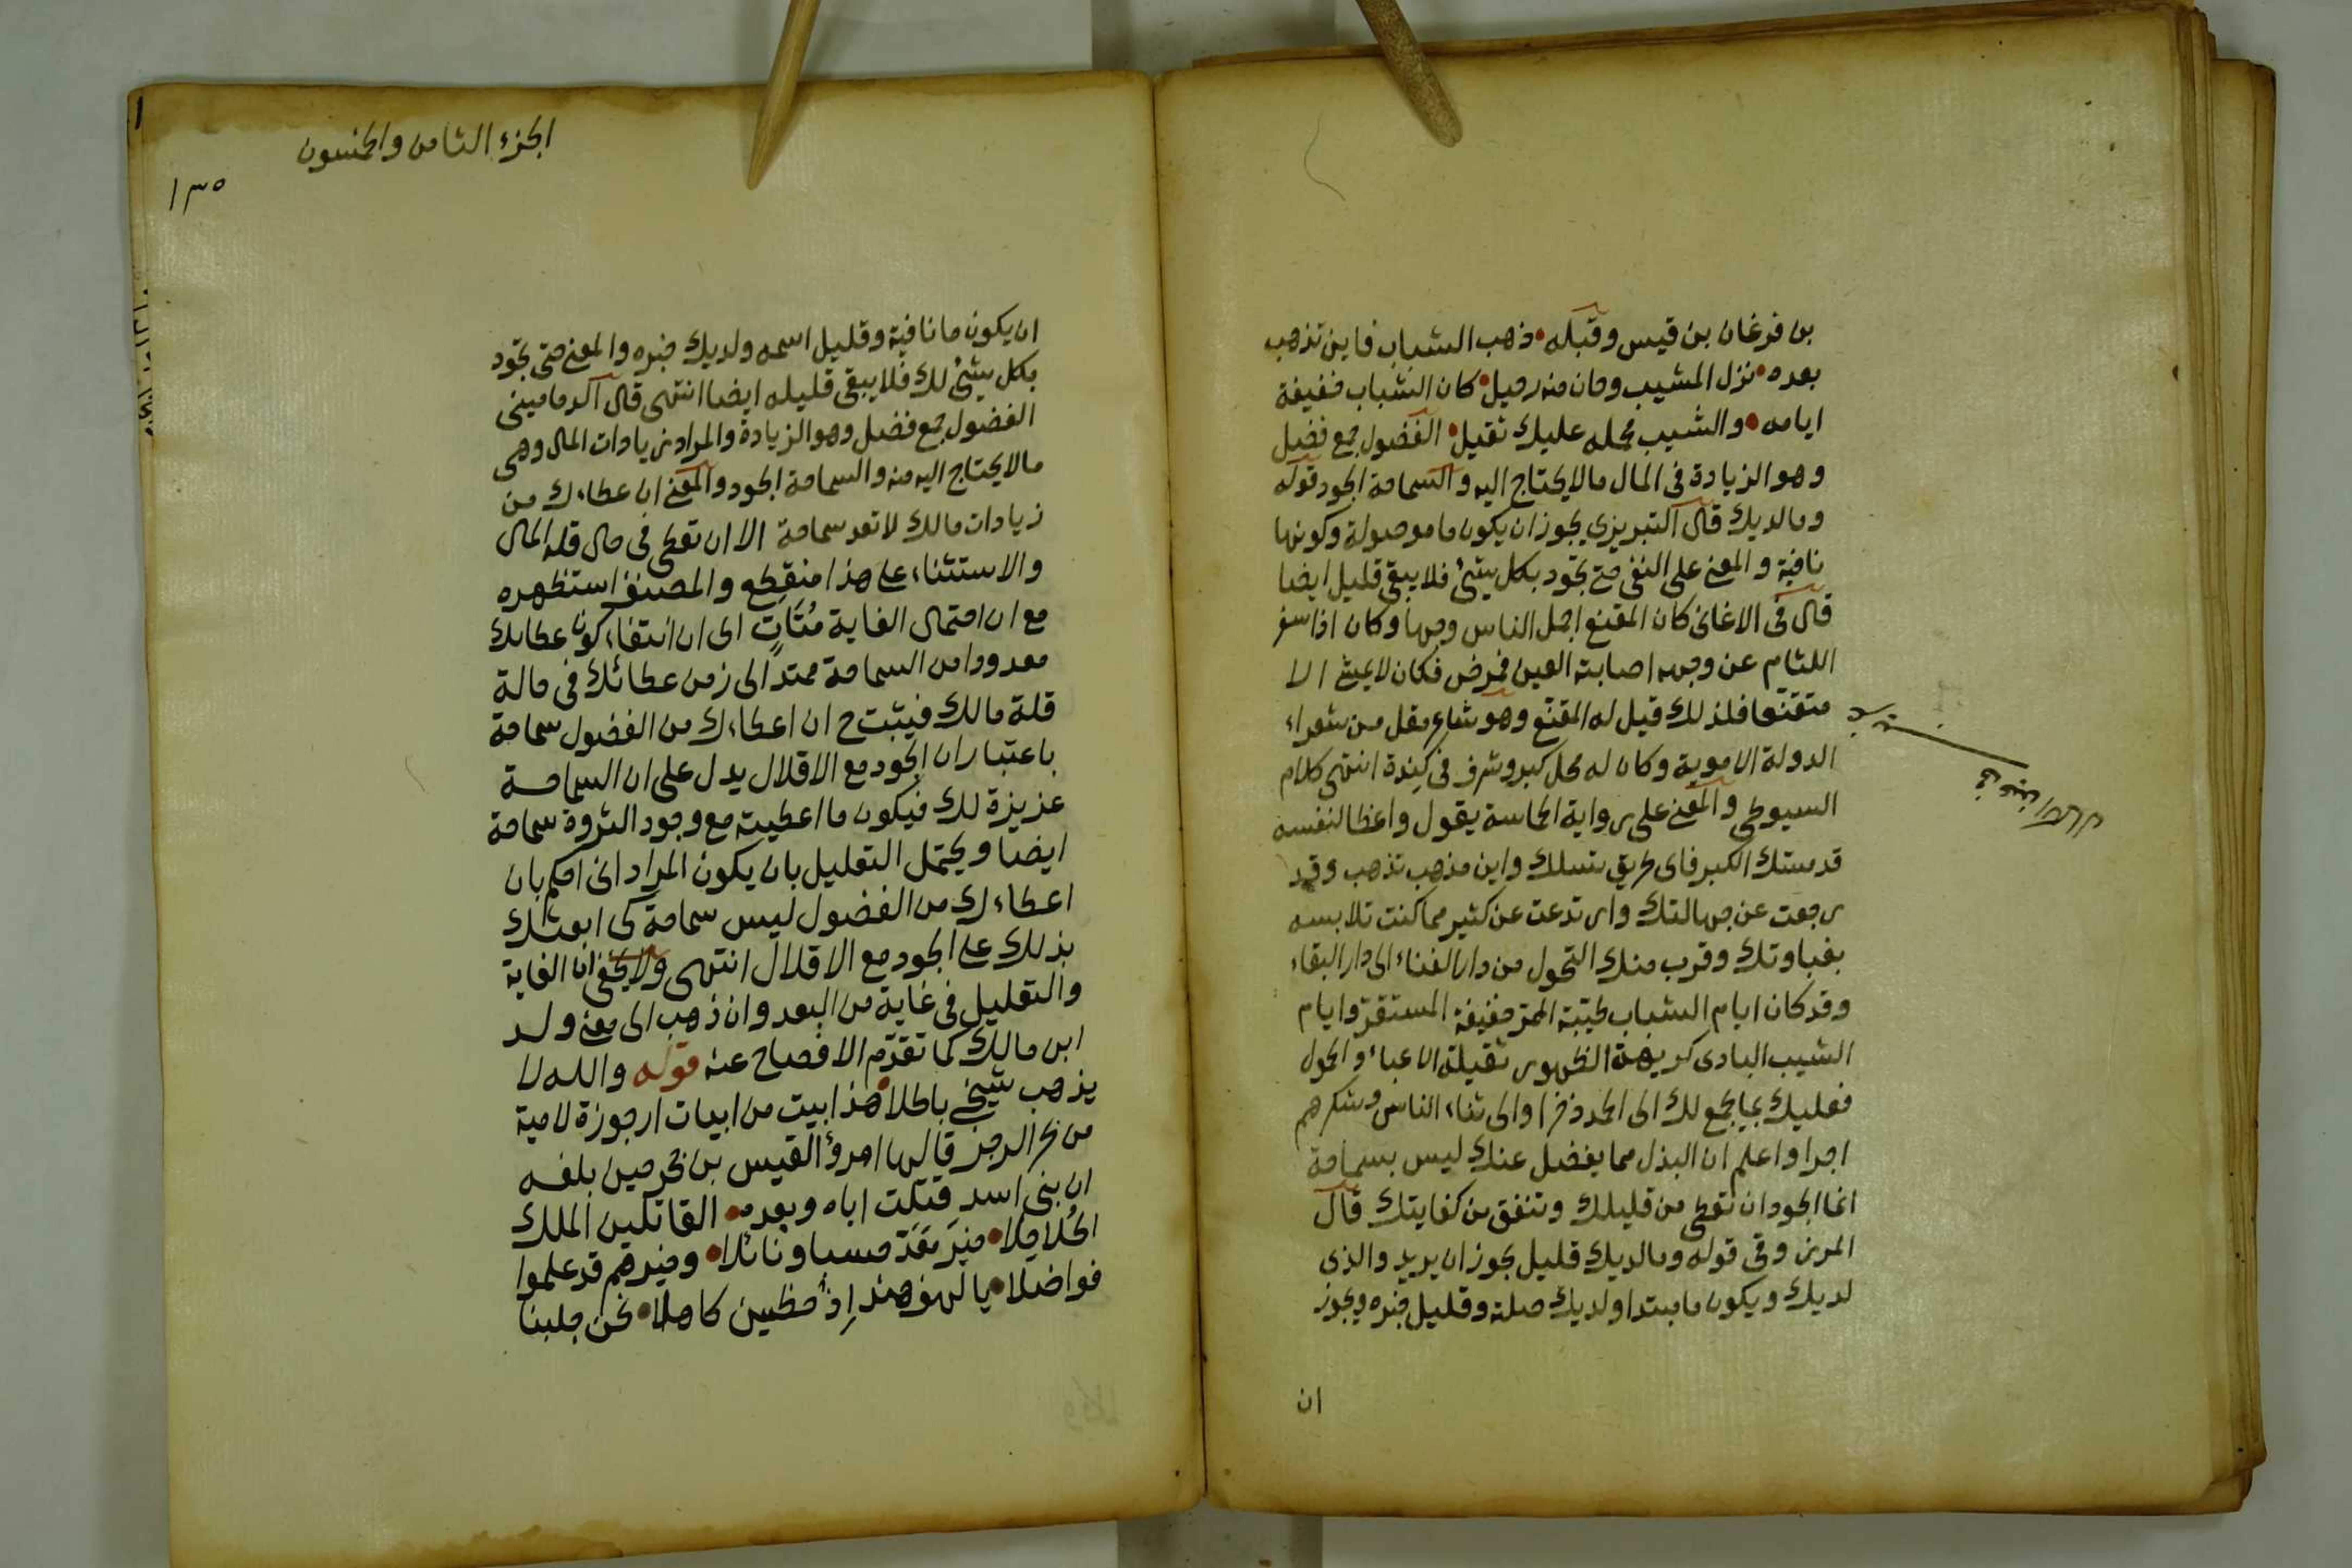 بن فرغان بن قيس وقبله • ذهب الشباب فاين تذهب
بعده • نزل المشيب وحان منه رحيل • كان الشباب خفيفة
ايامه • والشيب محله عليك ثقيل • الفضول جمع فضل
وهو الزيادة فى المال مالا يحتاج اليه والسماحة الجود قوله
وما لديك قال التبريزى يجوز ان يكون ما موصولة وكونها
نافية والمعنى على النفى حتى تجود بكل شئ فلا يبقى قليل ايضا
قال فى الاغانى كان المقنع اجمل الناس وجها وكان اذا سفر
اللثام عن وجهه اصابته العين فمرض فكان لا يمشى الا
متقنعا فلذلك قيل له المقنع وهو شاعر مقل من شعراء
الدولة الاموية وكان له محل كبير وشرف فى كندة انتهى كلام
السيوطى والمعنى على رواية الحماسة يقول واعظا لنفسه
قد مستك الكبر فاى طريق تسلك واين مذهب تذهب وقد
رجعت عن جهالتك وارتدعت عن كثير مما كنت تلابسه
بغباوتك وقرب منك التحول من دار الفناء الى دار البقاء
وقد كان ايام الشباب طيبة الممر خفيفة المستقر وايام
الشيب البادى كريهة الظهور ثقيلة الاعباء والحمول
فعليك بما يجمع لك الى الحمد ذخرا والى ثناء الناس وشكرهم
اجرا واعلم ان البذل مما يفضل عنك ليس بسماحة
انما الجود ان تعطى من قليلك وتنفق من كفايتك قال
المرزوقى قوله وما لديك قليل يجوز ان يريد والذى
لديك ويكون ما مبتدا ولديك صلة وقليل خبره ويجوز
ان
الجزء الثامن والخمسون
١٣٥
ان يكون ما نافية وقليل اسمه ولديك خبره والمعنى حتى تجود
بكل شئ لك فلا يبقى قليله ايضا انتهى قال الدمامينى
الفضول جمع فضل وهو الزيادة والمراد زيادات المال وهى
مالا يحتاج اليه منه والسماحة الجود والمعنى ان عطاءك من
زيادات مالك لا تعد سماحة الا ان تعطى فى حال قلة المال
والاستثناء على هذا منقطع والمصنف استظهره
مع ان احتمال الغاية مُتَاتٍ اى ان انتفاء كون عطائك
معدودا من السماحة ممتد الى زمن عطائك فى حالة
قلة مالك فيثبت ح ان اعطاءك من الفضول سماحة
باعتبار ان الجود مع الاقلال يدل على ان السماحة
عزيزة لك فيكون ما اعطيته مع وجود الثروة سماحة
ايضا ويحتمل التعليل بان يكون المراد انى احكم بان
اعطاءك من الفضول ليس سماحة كى ابعثك
بذلك على الجود مع الاقلال انتهى ولا يخفى ان الغاية
والتعليل فى غاية من البعد وان ذهب الى معنى ولد
ابن مالك كما تقدم الافصاح عنه قوله والله لا
يذهب شيخى باطلا • هذا بيت من ابيات ارجوزة لامية
من بحر الرجز قالها امرؤ القيس بن حجر حين بلغه
ان بنى اسد قتلت اباه وبعده • القاتلين الملك
الحُلاحلا • خير معد حسبا ونائلا • وخيرهم قد علموا
فواضلا • يا لهف هند إذ خطئن كاهلا • نحن جلبنا